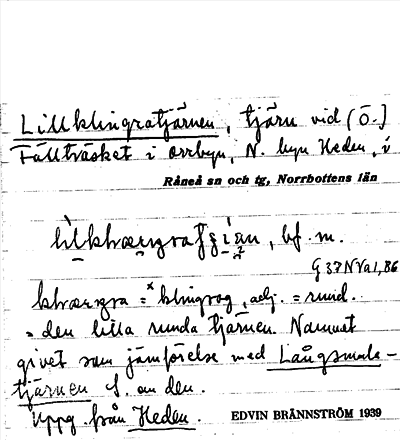 Lillklingratjärnen, tjärn vid (Ö.)
Fällträsket i orrbyn, N. byn Heden, i
Råneå sn och tg, Norrbottens län
bf. m.
G 37 N Va 1, 86
klingrog, adj. = rund.
= den lilla runda tjärnen. Namnet
givet som jämförelse med Långsmale-
tjärnen S. om den.
Uppg. från Heden.
EDVIN BRÄNNSTRÖM 1939